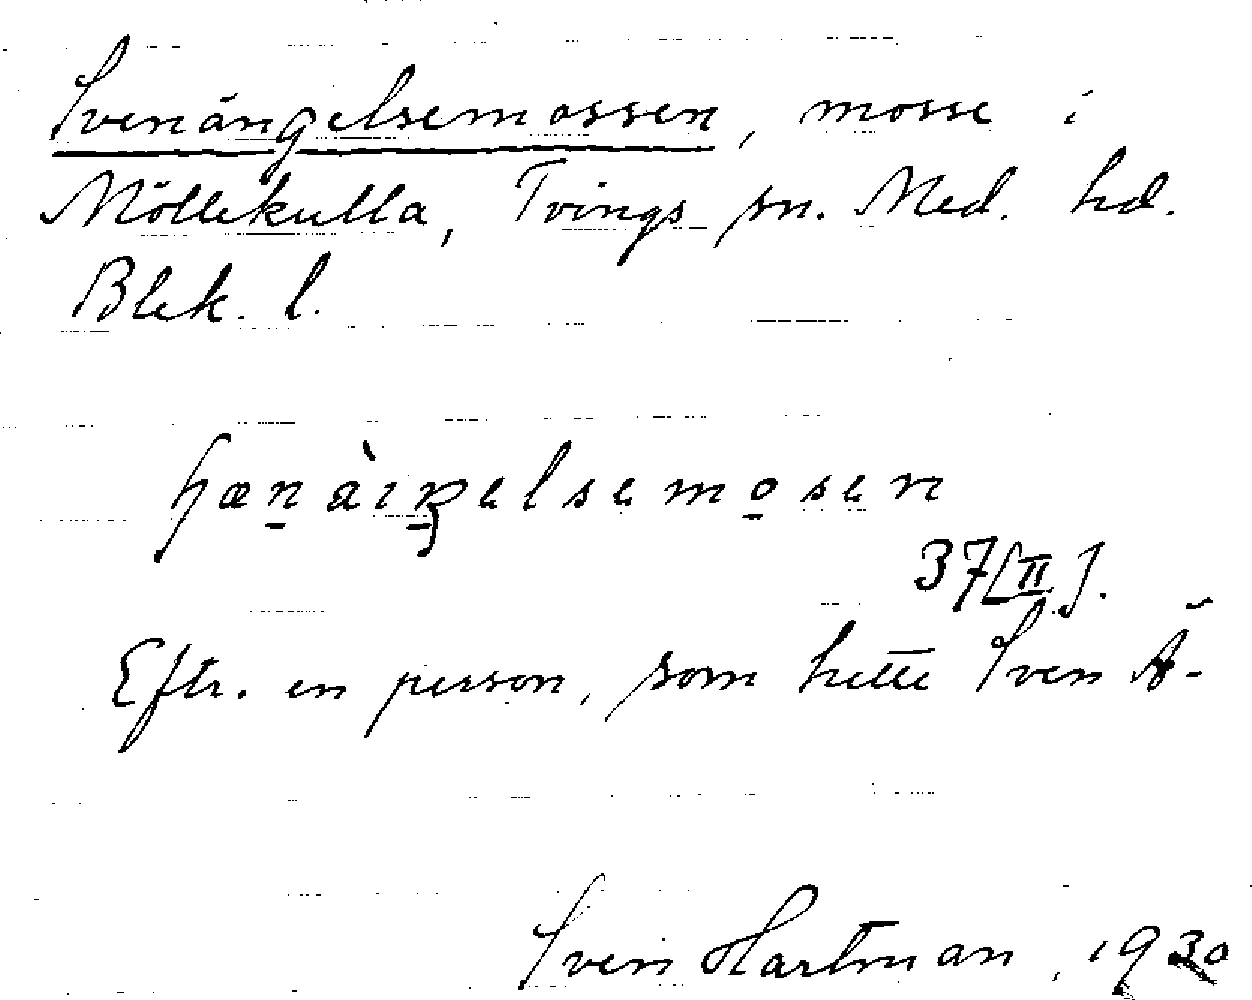 Svenängelsemossen, mosse i
Möllekulla, Tvings sn. Med. hd.
Blek. l.
37[II].
Eftr. en person, som hette Sven Ä-
Sven Hartman, 1930